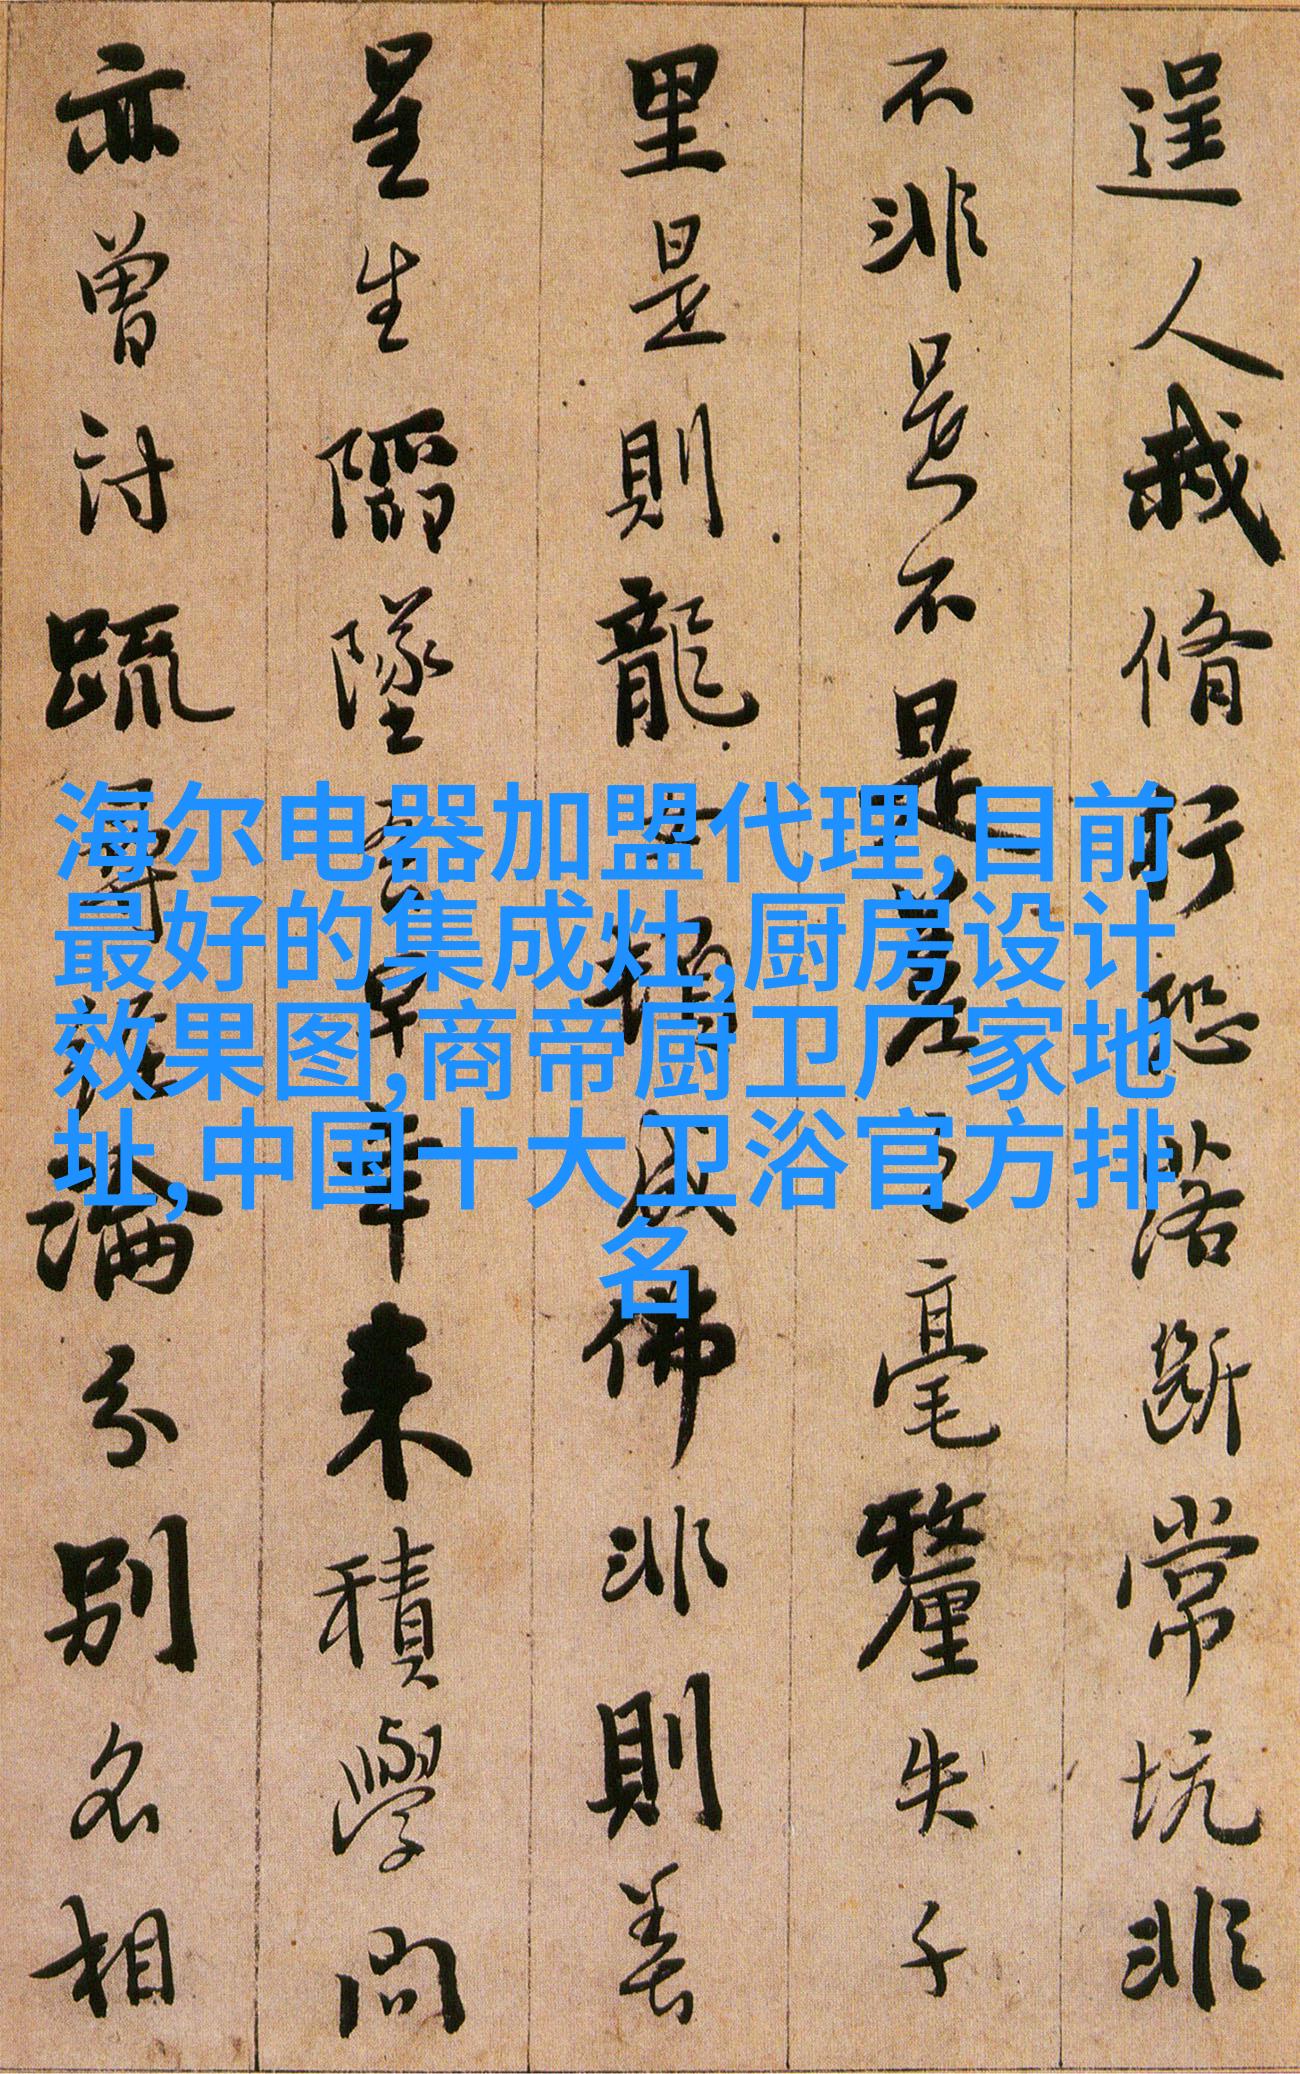 逞人我脩行恐落斷常坑非
不非是不是差之毫釐失千
里是則龍女頓成佛非則善
星生陷墜吾早年來積學問
亦曾討疏尋經論分別名相
海尔电器加盟代理,目前
最好的集成灶,厨房设计
效果图,商帝厨卫厂家地
址,中国十大卫浴官方排
名